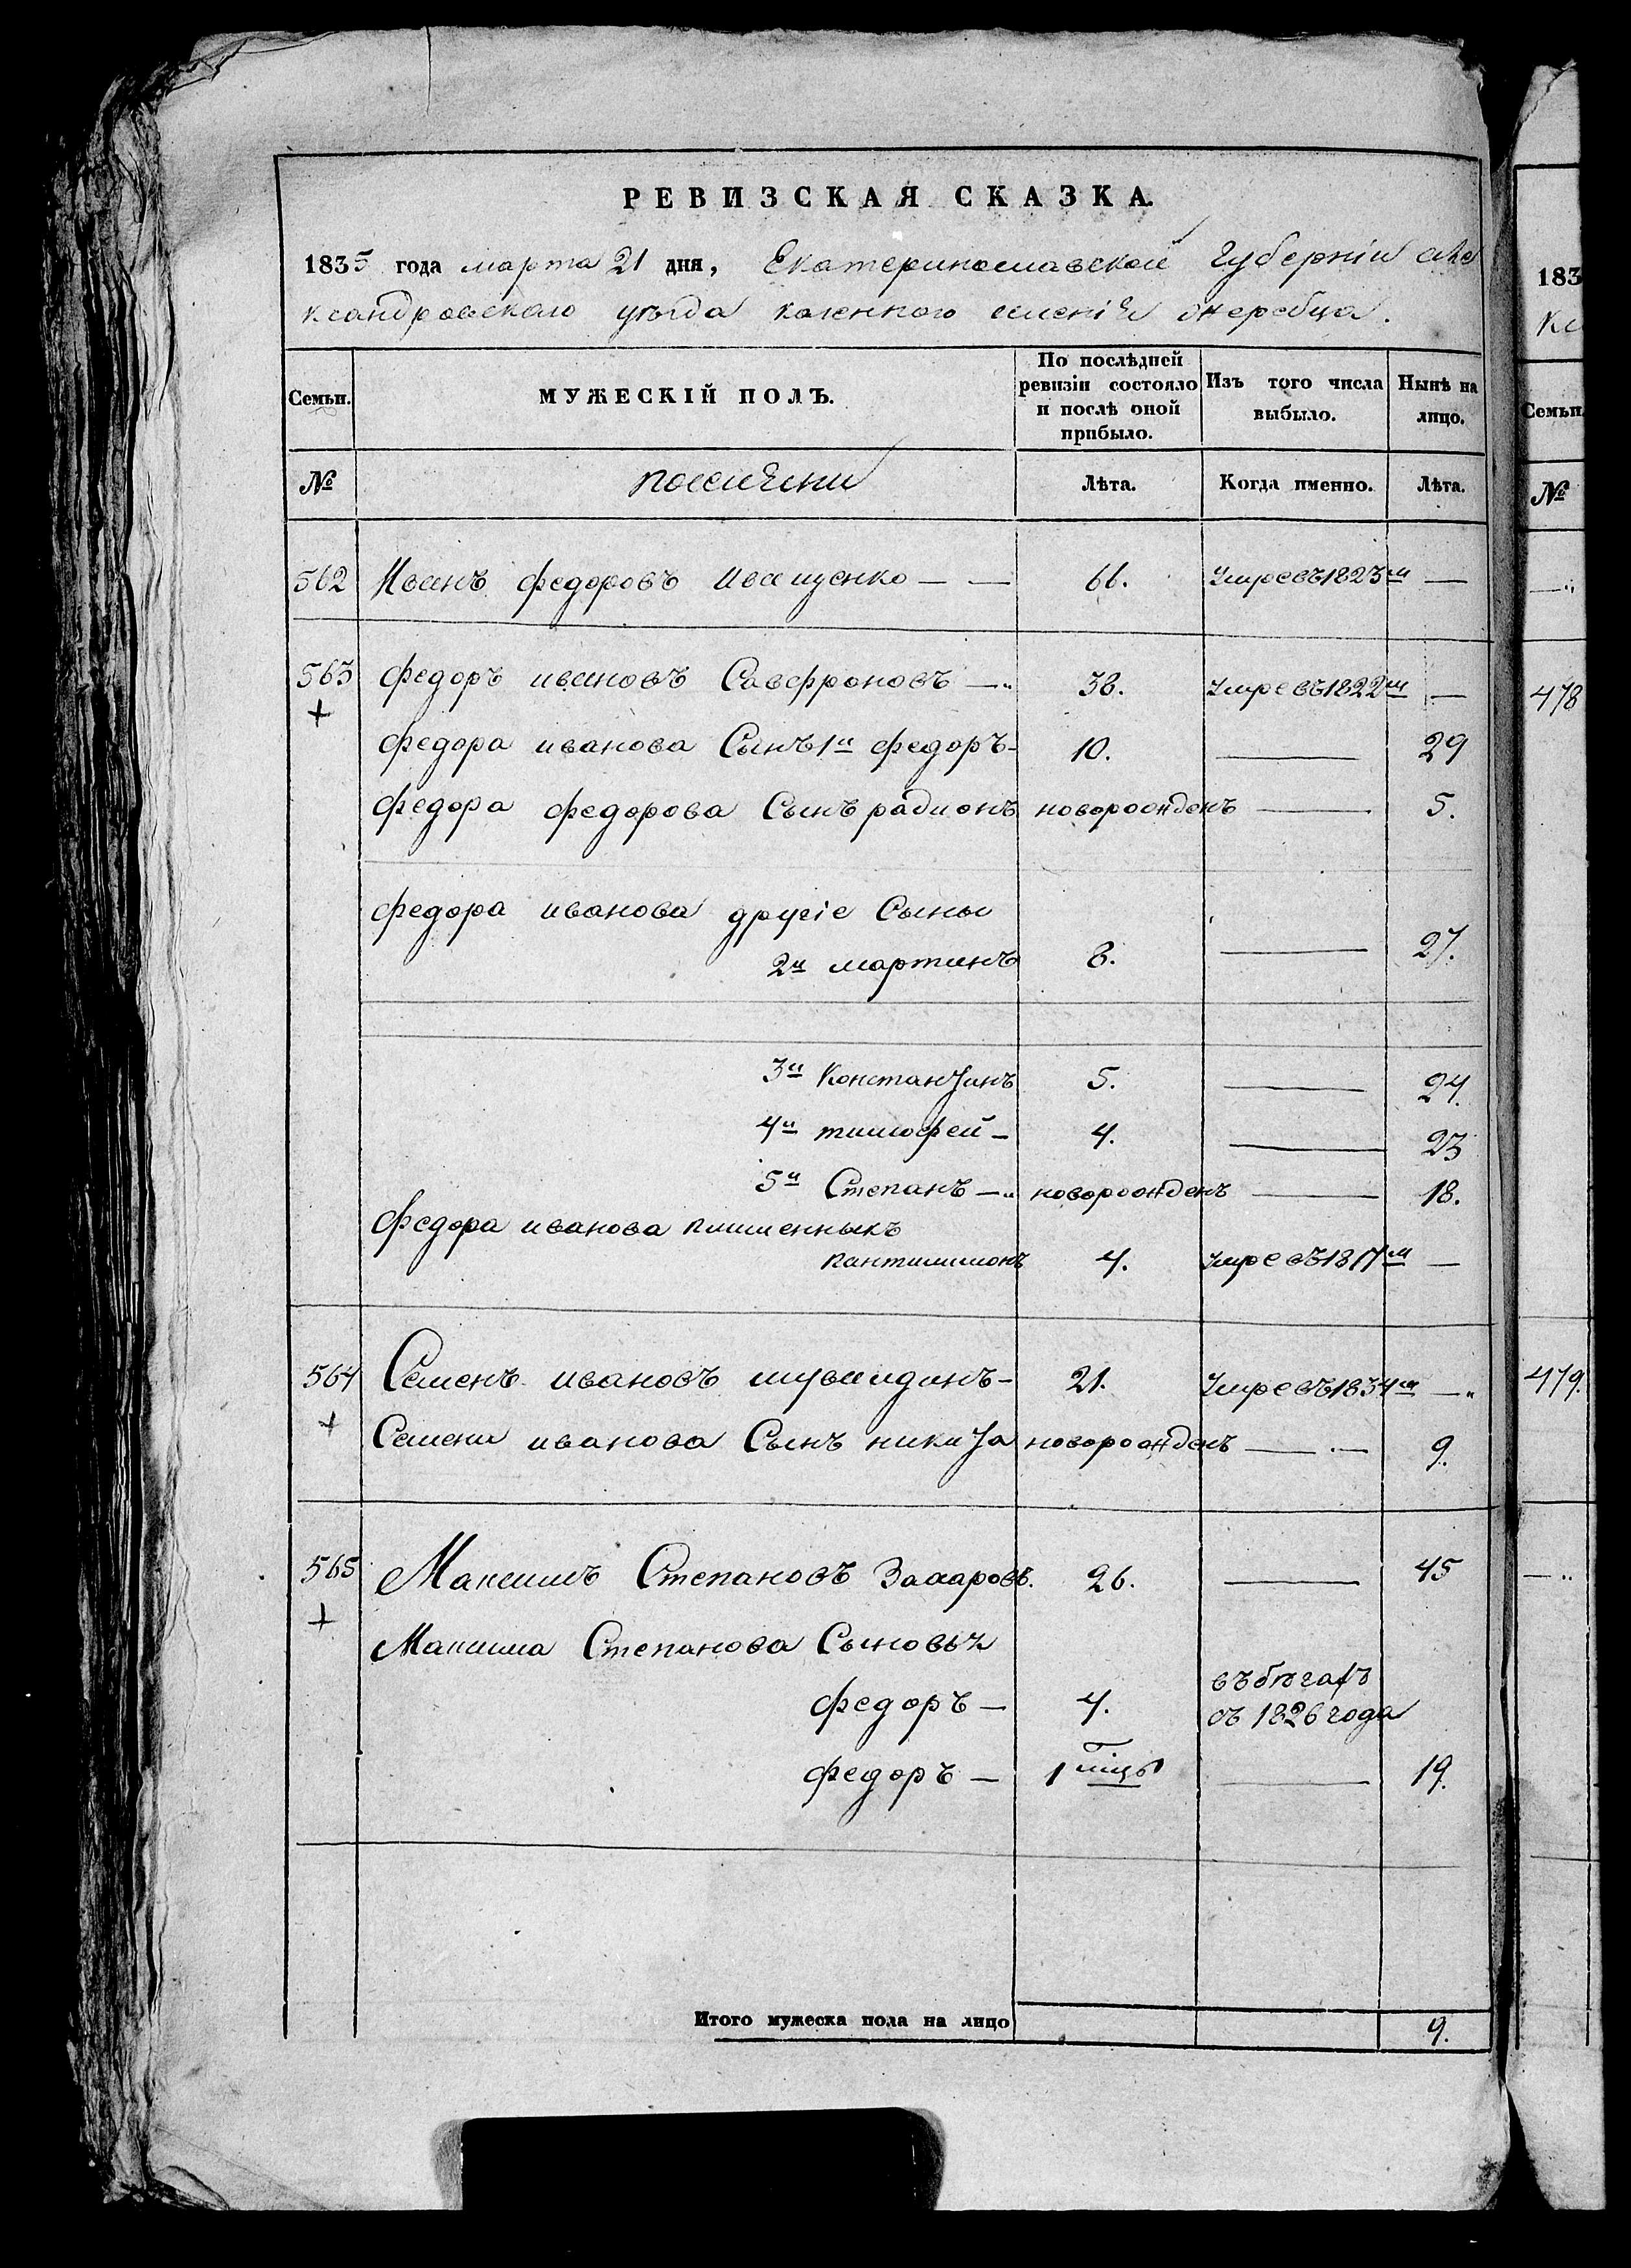 РЕВИЗСКАЯ СКАЗКА.
1835 года марта 21 дня, Екатеринославской Губерніи але
ксандровского уѣзда казенного селенія жеребца.
Семьи. МУЖЕСКІЙ ПОЛЪ. По послѣдней ревизіи состояло и послѣ оной прибыло. Изъ того числа выбыло. Нынѣ на лицо.
№ поселяни Лѣта. Когда именно. Лѣта.
562 Иванъ федоровъ Иващенко — — 66. Умре въ 1823м —
563 федоръ ивановъ Савфроновъ — 38. Умре въ 1822м —
федора иванова Сынъ 1й федоръ - 10. — 29
федора федорова Сынъ радионъ новорожденъ — 5.
федора иванова другіе Сыны
2й мартинъ 8. — 27.
3й Константинъ 5. — 24.
4й тимофей - 4. — 23
5й Степанъ — новорожденъ — 18.
федора иванова
пантилимонъ 4. Умре въ 1817м —
564 Семенъ ивановъ - 21. Умре въ 1834м —
Семена иванова Сынъ никита новорожденъ — 9.
565 Максимъ Степановъ Захаровъ. 26. — 45
Максима Степанова Сыновья
федоръ — 4. въ бѣгахъ
съ 1826 года
федоръ — 1 мца — 19.
Итого мужеска пола на лицо 9.
183
Семьи.
№
478
479.